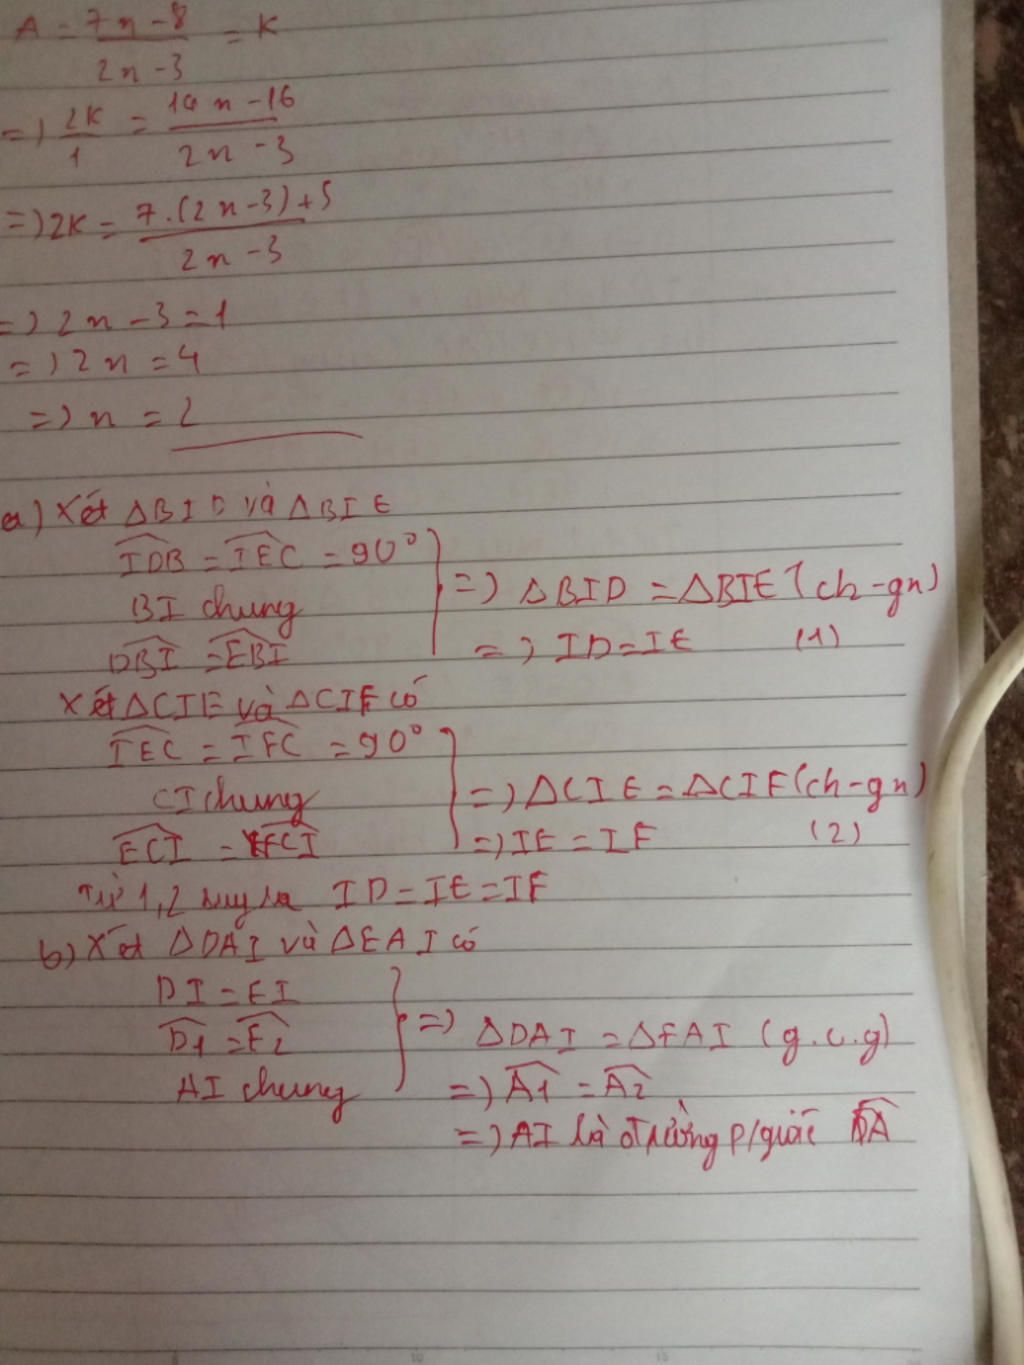 A = 7n-8 / 2n-3 = K
=) 2K/1 = 14n-16 / 2n-3
=) 2K = 7.(2n-3)+5 / 2n-3
=) 2n-3=1
=) 2n = 4
=) n = 2
a) Xét ΔBID và ΔBIE
IDB = IEC = 90°
BI chung
=) ΔBID = ΔBIE (ch-gn)
DBI = EBI
=) ID=IE (1)
Xét ΔCIE và ΔCIF có
IEC = IFC = 90°
CI chung
=) ΔCIE = ΔCIF (ch-gn)
ECI = FCI
=) IE = IF (2)
Từ 1,2 suy ra ID=IE=IF
b) Xét ΔDAI và ΔEAI có
DI = EI
D1 = E2
=) ΔDAI = ΔFAI (g.c.g)
AI chung
=) A1 = A2
=) AI là đường p/giác